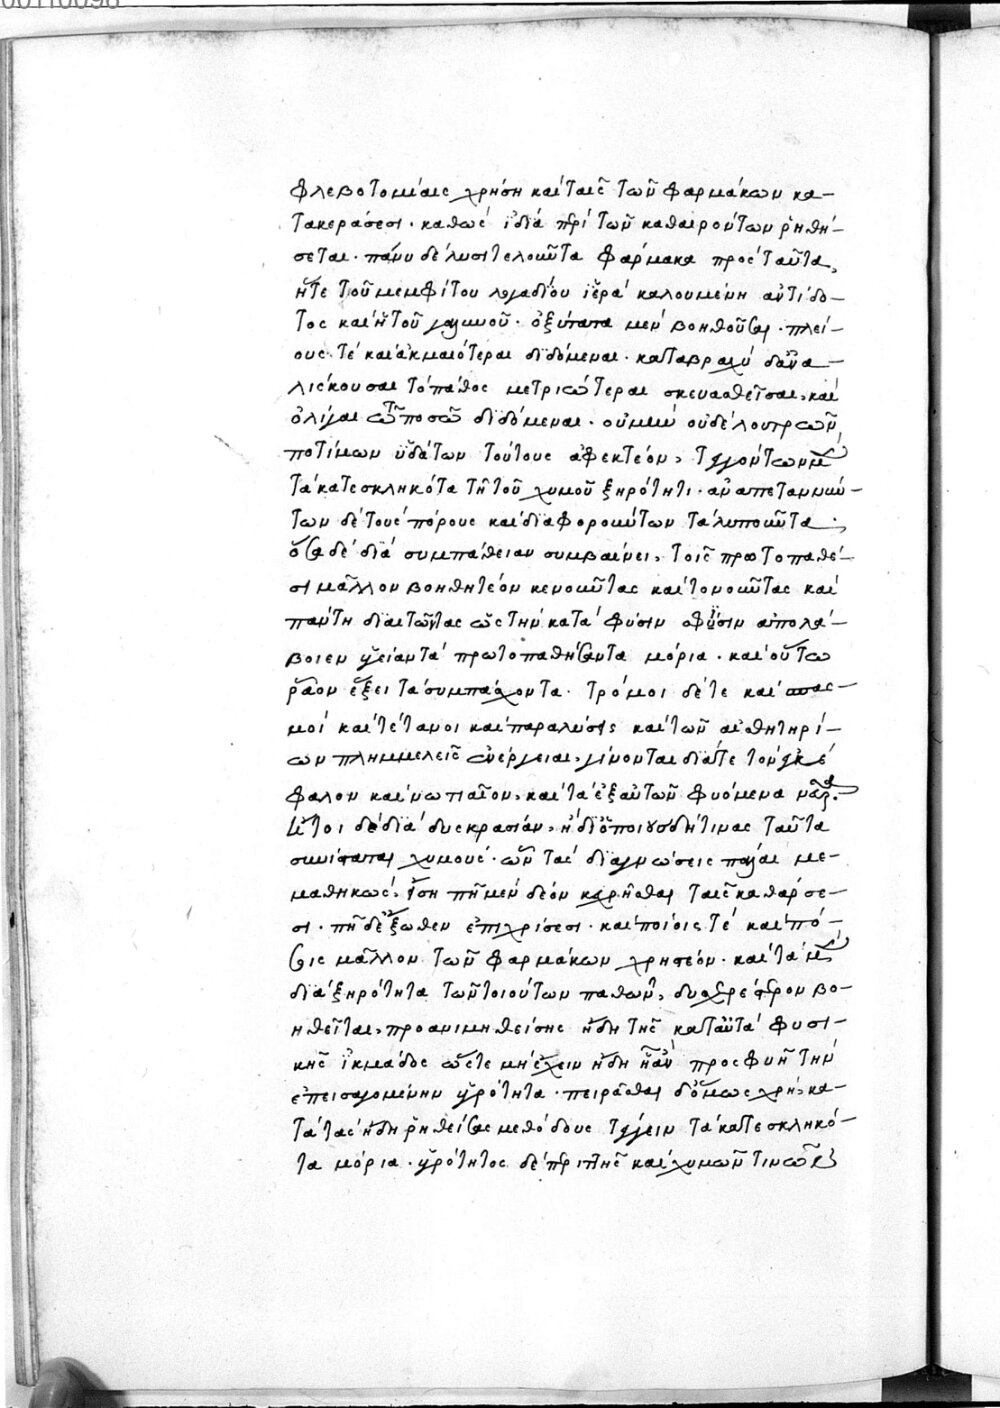 φλεβοτομίαις χρήση καὶ ταῖς τῶν φαρμάκων κα-
τακεράσεσι· καθὼς ἰδία περὶ τῶν καθαιρόντων ῥηθή-
σεται· πάνυ δὲ λυσιτελοῦντα φάρμακα πρὸς ταῦτα,
ἥτε τοῦ μεμφίτου λογαδίου ἱερὰ καλουμένη ἀντίδο-
τος καὶ ἡ τοῦ · ὀξύτατα μὲν βοηθοῦσαι· πλεί-
ους τὲ καὶ ἀκμαιότεραι διδόμεναι· καταβραχὺ δ' ἀνα-
λίσκουσαι τὸ πάθος μετριώτεραι σκευασθεῖσαι, καὶ
ὀλίγαι τῶ ποσῶ διδόμεναι· οὐ μὴν οὐδὲ λουτρῶν
ποτίμων ὑδάτων τούτους ἀφεκτέον, τεγγόντων μὲν
τὰ κατεσκληκότα τῇ τοῦ χυμοῦ ξηρότητι· ἀναπεταννύν-
των δὲ τοὺς πόρους καὶ διαφορούντων τὰ λυποῦντα·
ὅσα δὲ διὰ συμπάθειαν συμβαίνει, τοῖς πρωτοπαθέ-
σι μᾶλλον βοηθητέον κενοῦντας καὶ τονοῦντας καὶ
πάντη διαιτῶντας ὥς τὴν κατὰ φύσιν ἀπολά-
βοιεν ὑγείαν τὰ πρωτοπαθήσαντα μόρια· καὶ οὕτω
ῥᾶον ἕξει τὰ συμπάσχοντα· τρόμοι δέ τε καὶ σπασ-
μοὶ καὶ τέτανοι καὶ παραλύσις καὶ τῶν αἰσθητηρί-
ων πλημμελεῖς ἐνέργειαι, γίνονται διά τε τὸν ἐγκέ-
φαλον καὶ νωτιαῖον, καὶ τὰ ἐξ αὐτῶν φυόμενα νεῦρα.
ἤτοι δὲ διὰ δυσκρασίαν, ἢ δι' ὁποιουσδήτινας ταῦτα
συνίσταται χυμούς· ὧν τὰς διαγνώσεις πάλαι με-
μαθηκὼς, ἴση πῆ μὲν δέον κεχρῆσθαι ταῖς καθάρσε-
σι· πῆ δ' ἔξωθεν ἐπιχρίσεσι· καὶ ποίοις τὲ καὶ πό-
σοις μᾶλλον τῶν φαρμάκων χρηστέον· καὶ τὰ μὲν
διὰ ξηρότητα τῶν τοιούτων παθῶν, δυσχερέστερον βο-
ηθεῖται, προανιμηθείσης ἤδη τῆς κατ' αὐτὰ φυσι-
κῆς ἰκμάδος ὥστε μὴ ἔχειν ἤδη προσφυῆ τὴν
ἐπεισαγομένην ὑγρότητα· πειρᾶσθαι δ' ὅμως χρὴ, κα-
τὰ τὰς ἤδη ῥηθείσας μεθόδους τέγγειν τὰ κατεσκληκό-
τα μόρια· ὑγρότητος δὲ περιττῆς καὶ χυμῶν τινῶν